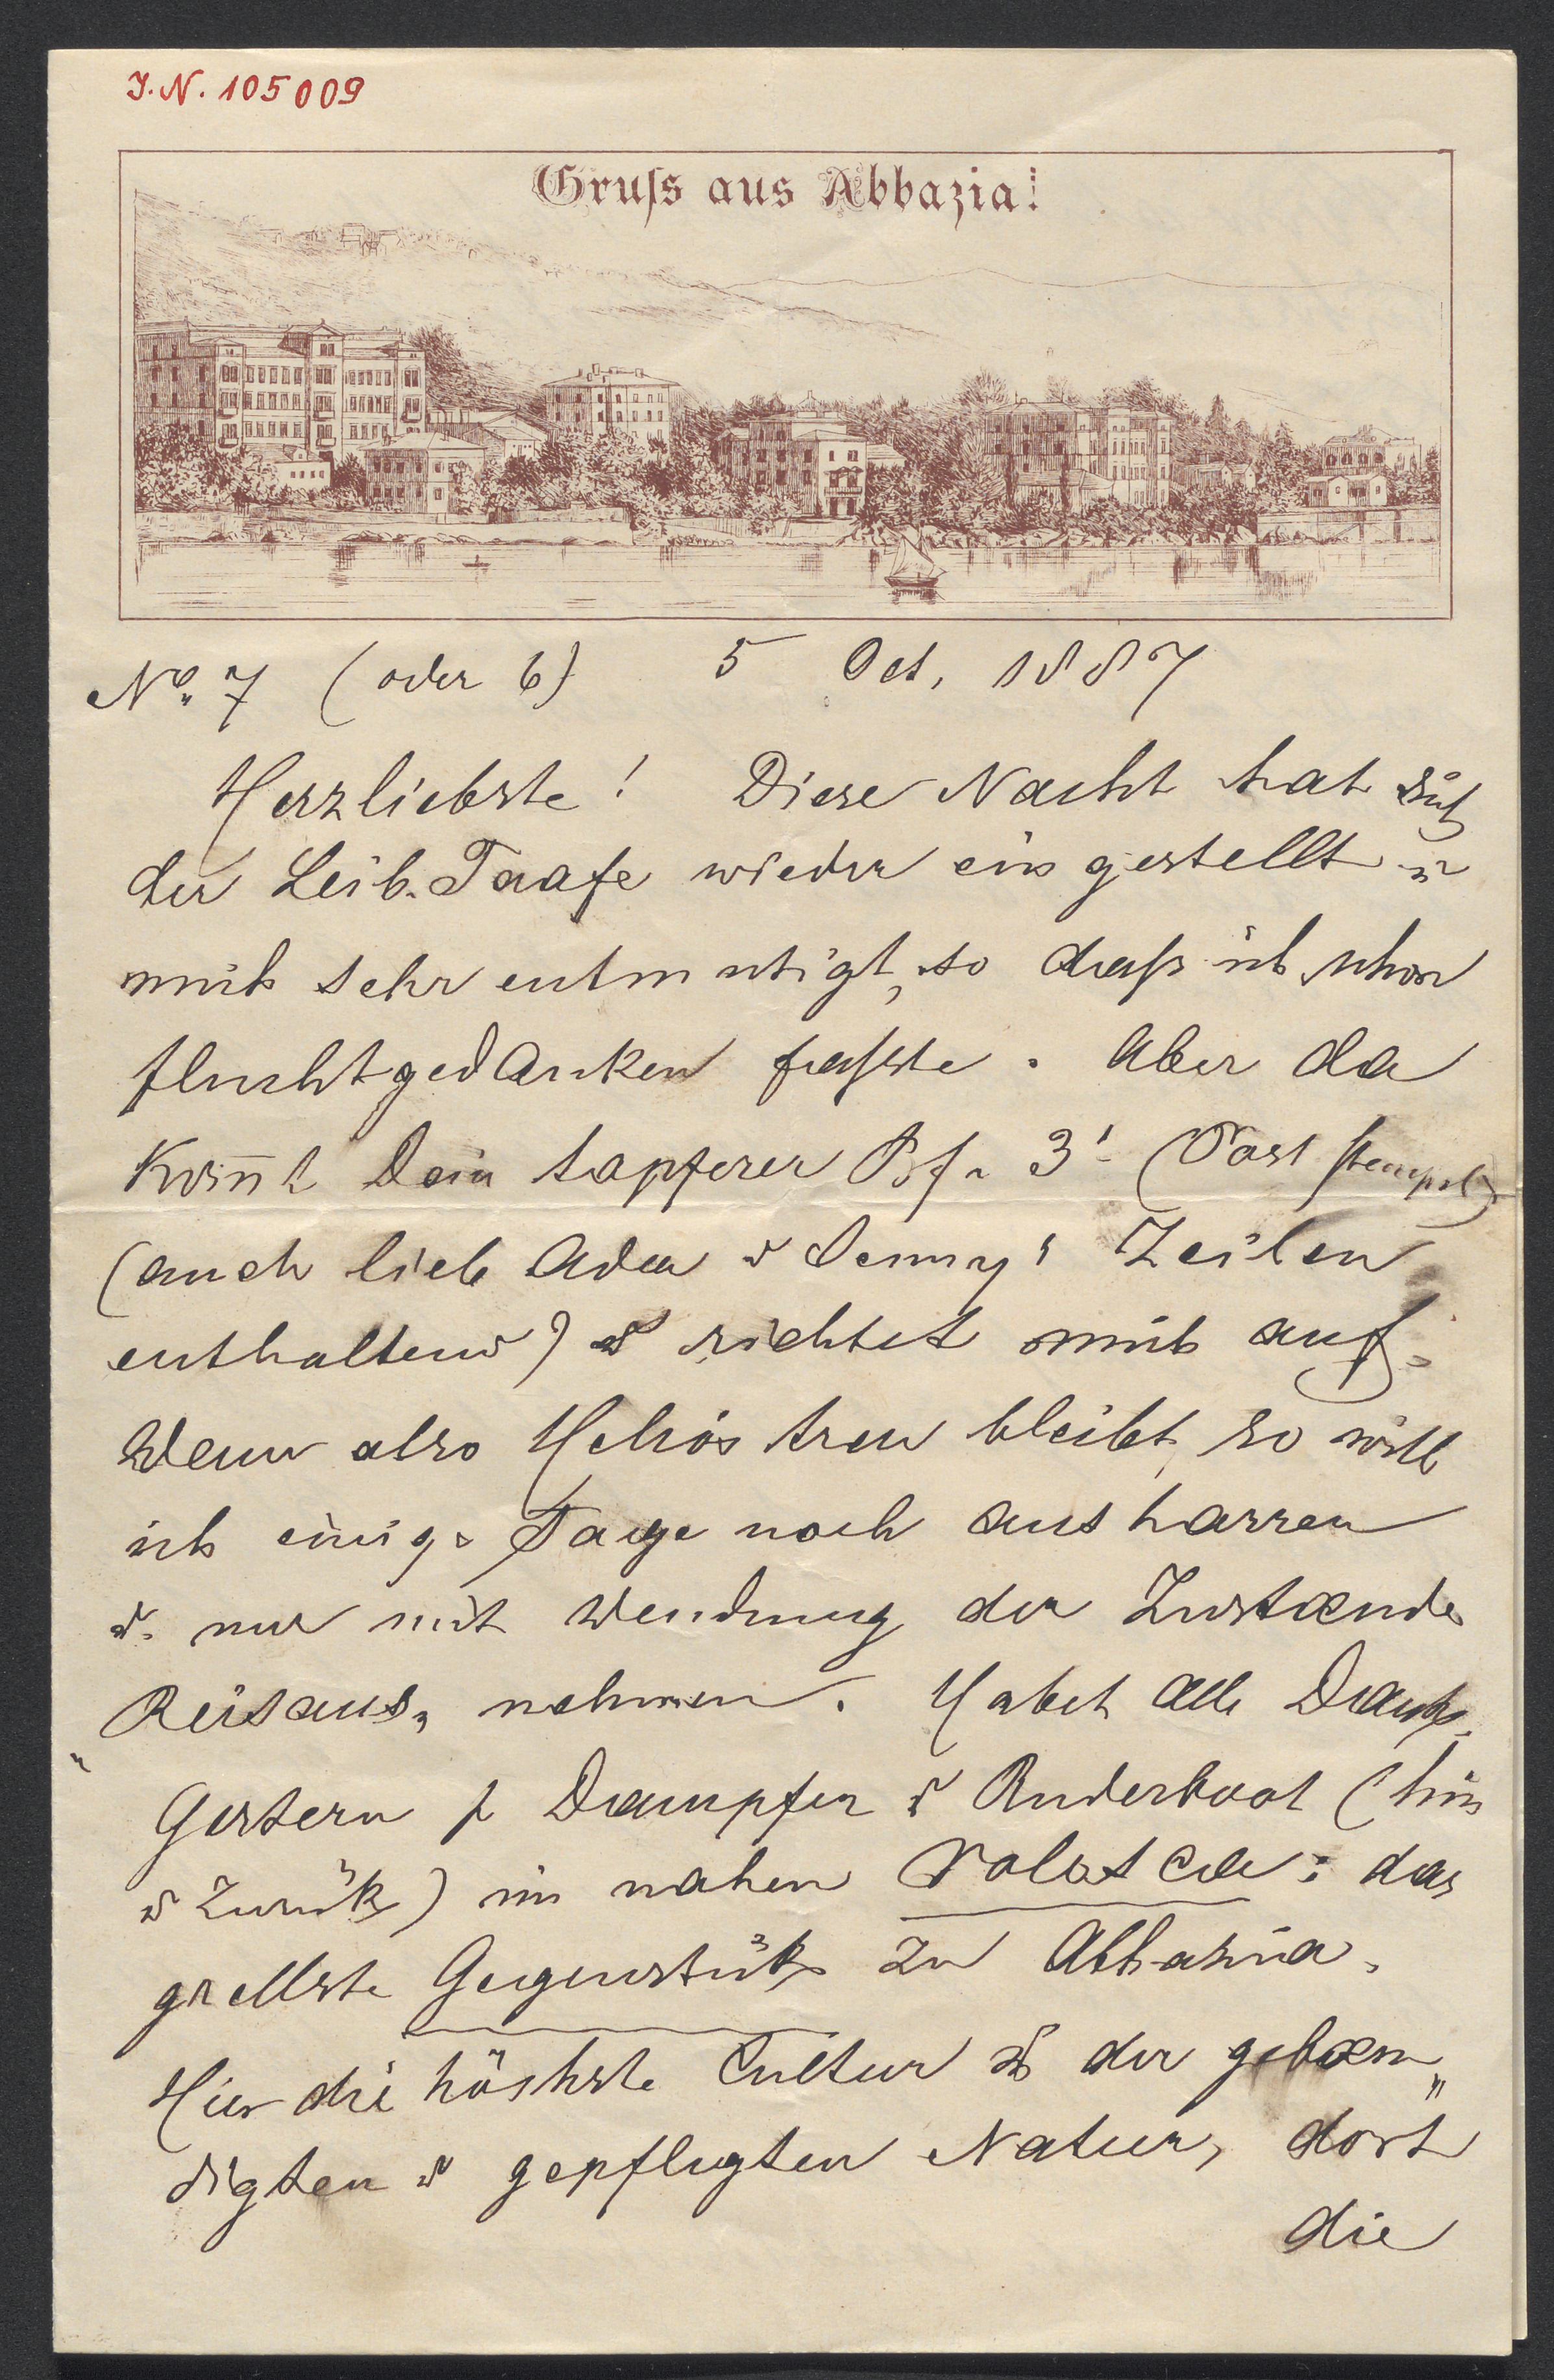 J.N. 105009
Gruſs aus Abbazia!
No. 7 (oder 6) 5 Oct, 1887
Herzliebste! Diese Nacht hat sich
der Leib. Taafe wieder eingestellt u
mich sehr entmutigt, so daſs ich schon
fluchtgedanken faſste. Aber da
kom̄t Dein tapferer Bf. 3' (Poststempel)
(auch lieb Ada u Jenny's Zeilen
enthaltend) u richtet mich auf.
Wenn also Helios treu bleibt, so will
ich einige Tage noch ausharren
u. nur mit Wendung der Zustaende
"Reisaus" nehmen. Habet alle Dank.
Gestern p Dampfer u Ruderboot (hin
u Zurük) im nahen Volosca: das
grellste Gegenstük zu Abbazia.
Hier die höchste Cultur u der gebaen„
digten u gepflegten Natur, dort
die